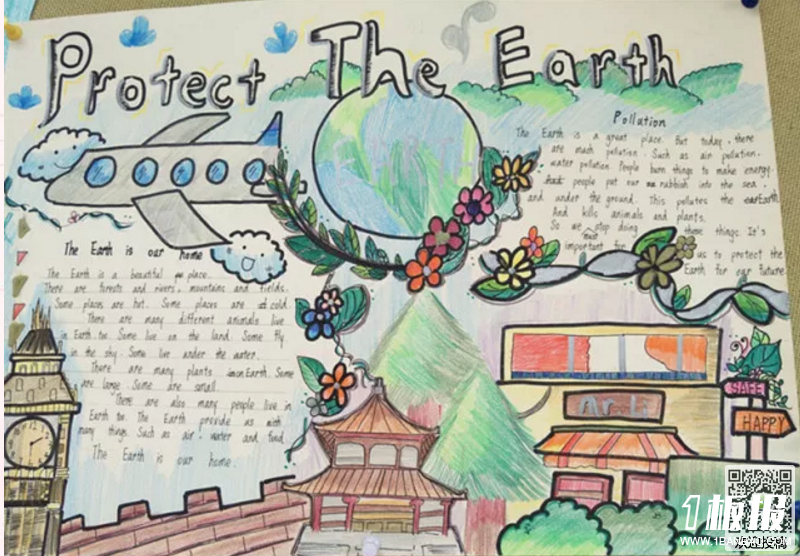 Protect The Earth
Pollution
The Earth is a great place. But today, there
are much pollution. Such as air pollution.
water pollution. People burn things to make energy.
people put our rubbish into the sea.
and under the ground. This pollutes the Earth
And kills animals and plants.
So we must stop doing these things. It's
important for us to protect the
Earth for our future
The Earth is our home
The Earth is a beautiful place.
There are forests and rivers, mountains and fields.
Some places are hot. Some places are cold.
There are many different animals live
in Earth too. Some live on the land. Some fly
in the sky. Some live under the water.
There are many plants on Earth. Some
are large. Some are small.
There are also many people live in
Earth too. The Earth provide us with
many things. Such as air, water and food.
The Earth is our home.
SAFE
HAPPY
1板报
WWW.1BANBAO.COM